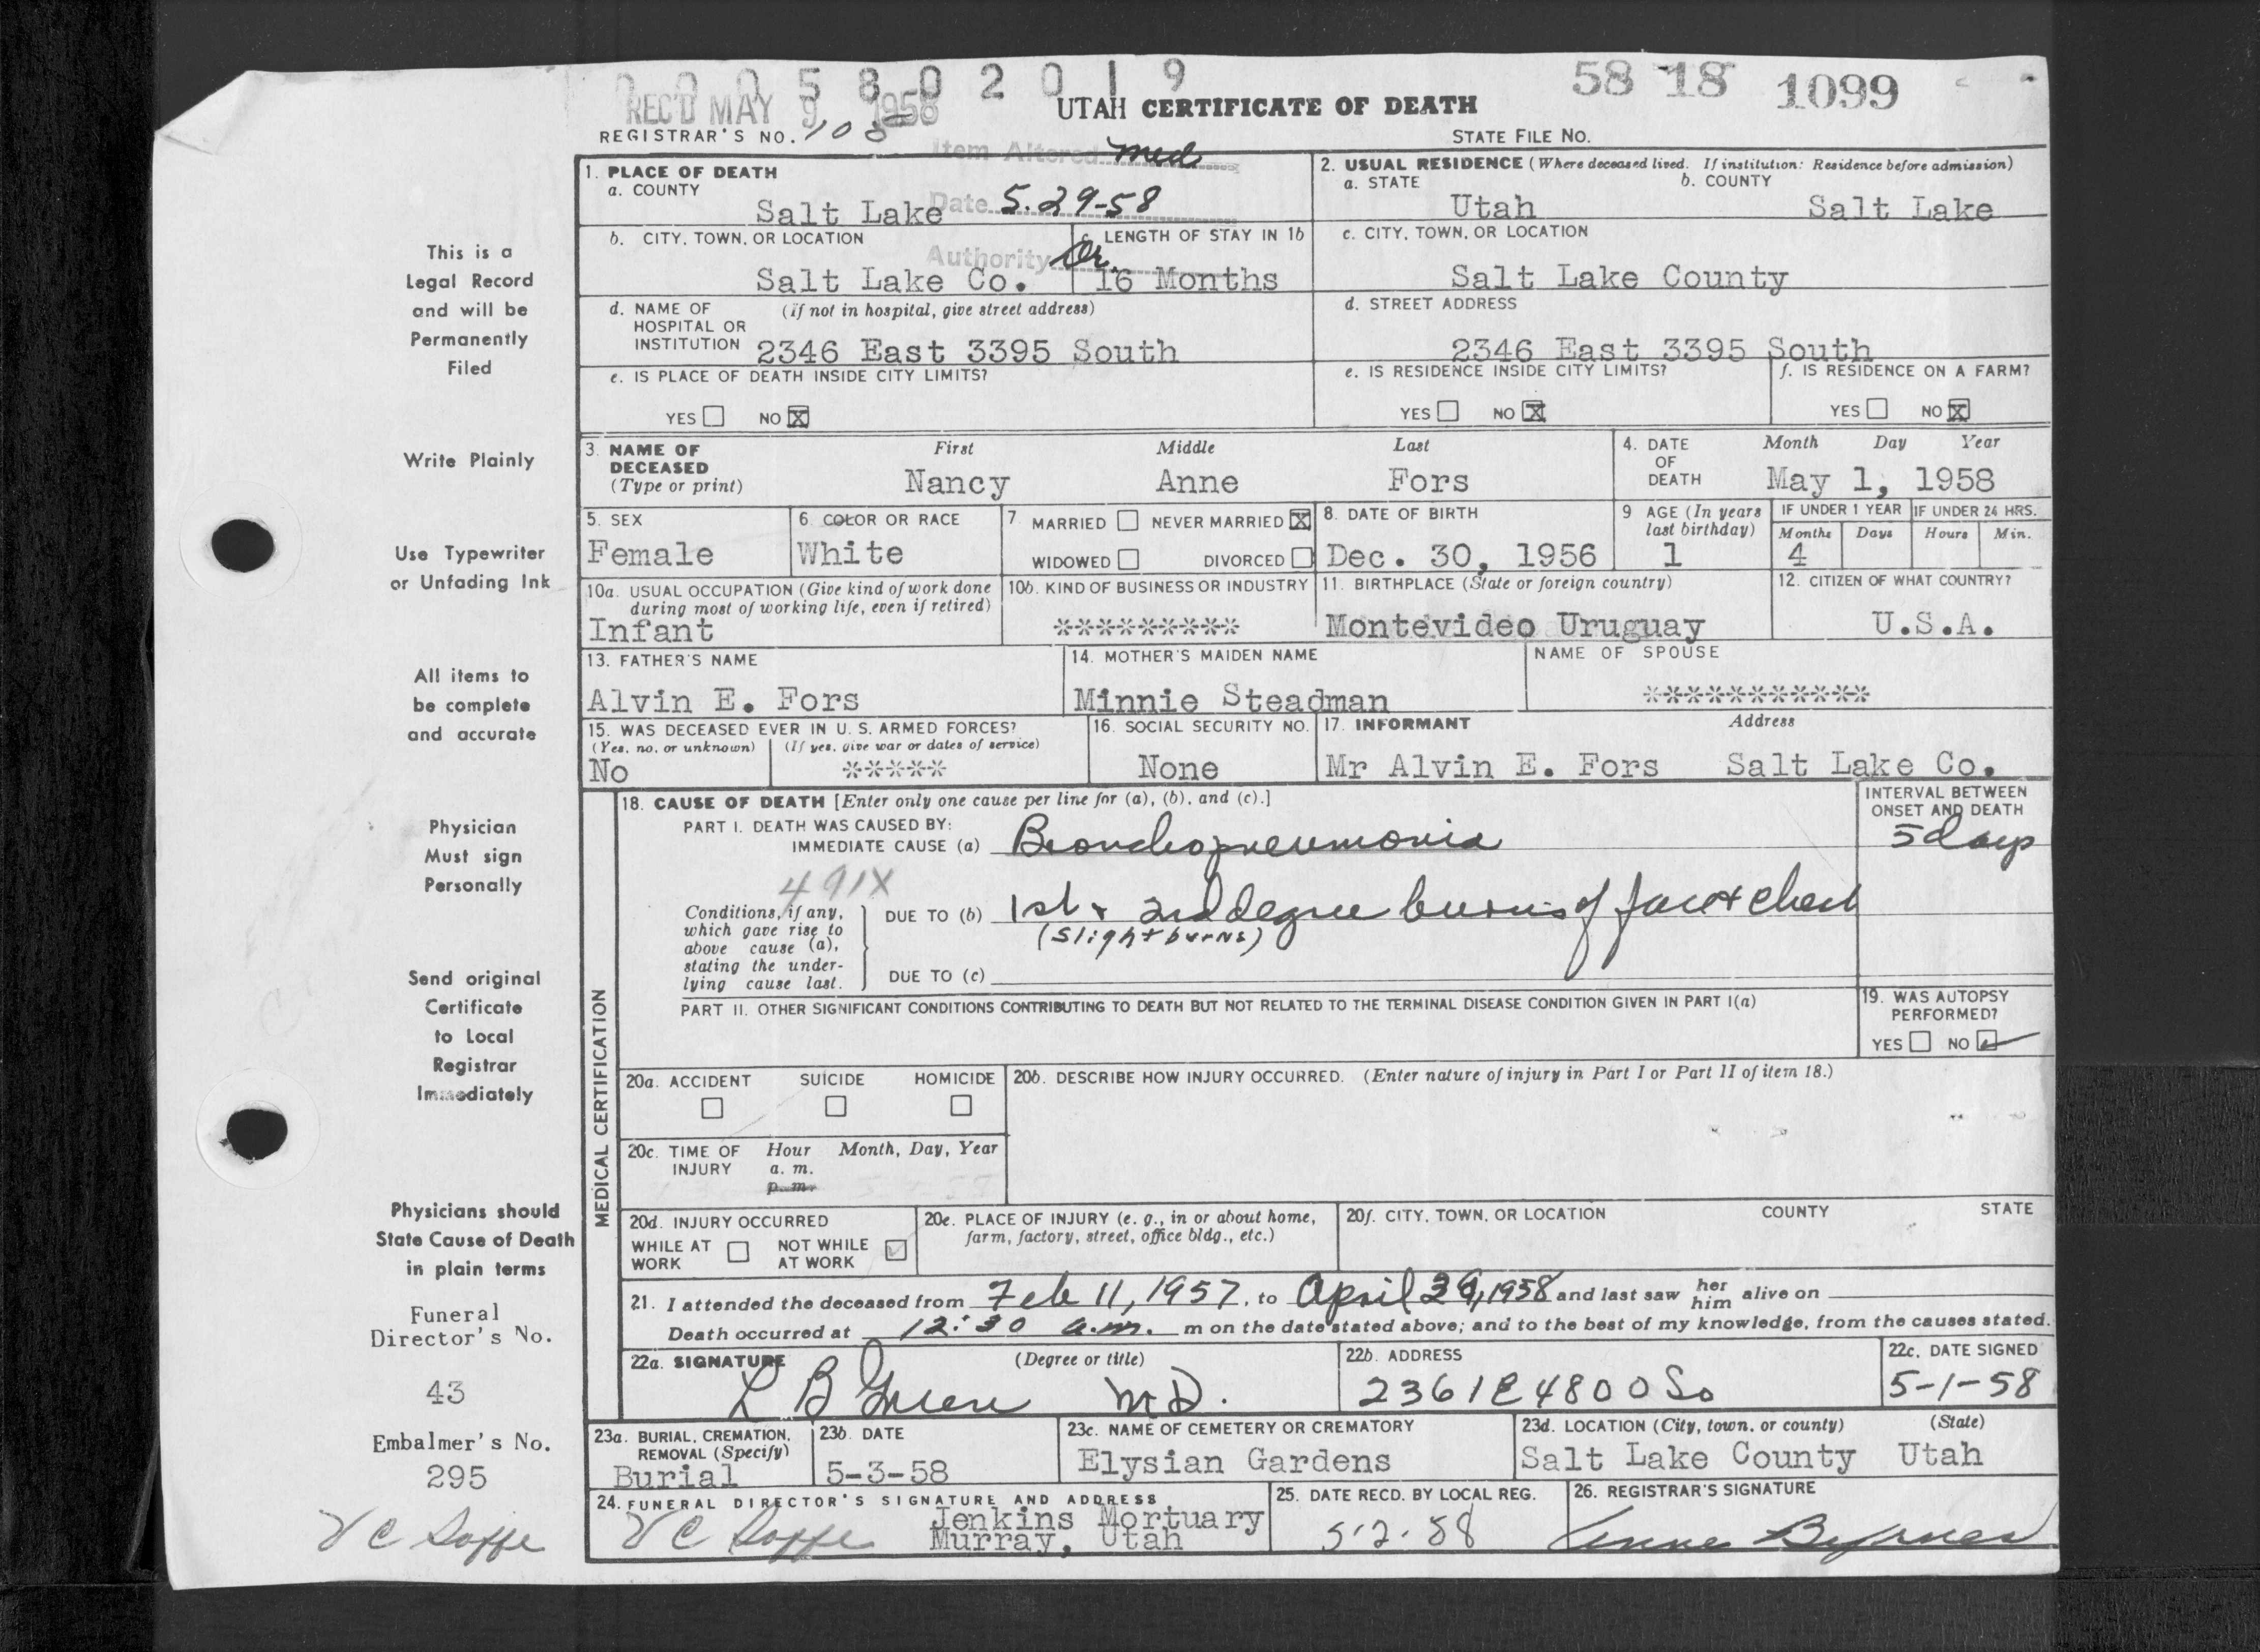 0 0 0 5 8 0 2 0 1 9
58 18 1099
REC'D MAY 9 1958
UTAH CERTIFICATE OF DEATH
REGISTRAR'S NO. 108
STATE FILE NO.
Item Altered med
Date 5.29-58
Authority Dr.
1. PLACE OF DEATH
a. COUNTY
Salt Lake
2. USUAL RESIDENCE (Where deceased lived. If institution: Residence before admission)
a. STATE b. COUNTY
Utah Salt Lake
b. CITY, TOWN, OR LOCATION
Salt Lake Co.
c. LENGTH OF STAY IN 1b
16 Months
c. CITY, TOWN, OR LOCATION
Salt Lake County
d. NAME OF (If not in hospital, give street address)
HOSPITAL OR
INSTITUTION 2346 East 3395 South
d. STREET ADDRESS
2346 East 3395 South
e. IS PLACE OF DEATH INSIDE CITY LIMITS?
YES NO X
e. IS RESIDENCE INSIDE CITY LIMITS?
YES NO X
f. IS RESIDENCE ON A FARM?
YES NO X
3. NAME OF DECEASED (Type or print)
First Middle Last
Nancy Anne Fors
4. DATE OF DEATH
Month Day Year
May 1, 1958
5. SEX
Female
6. COLOR OR RACE
White
7. MARRIED NEVER MARRIED X
WIDOWED DIVORCED
8. DATE OF BIRTH
Dec. 30, 1956
9 AGE (In years
last birthday)
1
IF UNDER 1 YEAR IF UNDER 24 HRS.
Months Days Hours Min.
4
10a. USUAL OCCUPATION (Give kind of work done
during most of working life, even if retired)
Infant
10b. KIND OF BUSINESS OR INDUSTRY
*********
11. BIRTHPLACE (State or foreign country)
Montevideo Uruguay
12. CITIZEN OF WHAT COUNTRY?
U.S.A.
13. FATHER'S NAME
Alvin E. Fors
14. MOTHER'S MAIDEN NAME
Minnie Steadman
NAME OF SPOUSE
***********
15. WAS DECEASED EVER IN U. S. ARMED FORCES?
(Yes, no, or unknown) (If yes, give war or dates of service)
No *****
16. SOCIAL SECURITY NO.
None
17. INFORMANT Address
Mr Alvin E. Fors Salt Lake Co.
MEDICAL CERTIFICATION
18. CAUSE OF DEATH [Enter only one cause per line for (a), (b), and (c).]
PART I. DEATH WAS CAUSED BY:
IMMEDIATE CAUSE (a) Bronchopneumonia
INTERVAL BETWEEN
ONSET AND DEATH
5 days
491X
Conditions, if any,
which gave rise to
above cause (a),
stating the under-
lying cause last.
DUE TO (b) 1st & 2nd degree burns of face & chest
(slight burns)
DUE TO (c)
PART II. OTHER SIGNIFICANT CONDITIONS CONTRIBUTING TO DEATH BUT NOT RELATED TO THE TERMINAL DISEASE CONDITION GIVEN IN PART I(a)
19. WAS AUTOPSY
PERFORMED?
YES NO ✓
20a. ACCIDENT SUICIDE HOMICIDE
20b. DESCRIBE HOW INJURY OCCURRED. (Enter nature of injury in Part I or Part II of item 18.)
20c. TIME OF INJURY
Hour Month, Day, Year
a. m.
p. m.
20d. INJURY OCCURRED
WHILE AT WORK NOT WHILE AT WORK ✓
20e. PLACE OF INJURY (e. g., in or about home,
farm, factory, street, office bldg., etc.)
20f. CITY, TOWN, OR LOCATION COUNTY STATE
21. I attended the deceased from Feb 11, 1957, to April 29, 1958 and last saw her him alive on
Death occurred at 12:30 a.m. m on the date stated above; and to the best of my knowledge, from the causes stated.
22a. SIGNATURE (Degree or title)
L B Green M.D.
22b. ADDRESS
2361 E 4800 So
22c. DATE SIGNED
5-1-58
23a. BURIAL, CREMATION,
REMOVAL (Specify)
Burial
23b. DATE
5-3-58
23c. NAME OF CEMETERY OR CREMATORY
Elysian Gardens
23d. LOCATION (City, town, or county) (State)
Salt Lake County Utah
24. FUNERAL DIRECTOR'S SIGNATURE AND ADDRESS
V C Soffe Jenkins Mortuary
Murray, Utah
25. DATE RECD. BY LOCAL REG.
5-2-58
26. REGISTRAR'S SIGNATURE
Anne Byrnes
This is a
Legal Record
and will be
Permanently
Filed
Write Plainly
Use Typewriter
or Unfading Ink
All items to
be complete
and accurate
Physician
Must sign
Personally
Send original
Certificate
to Local
Registrar
Immediately
Physicians should
State Cause of Death
in plain terms
Funeral
Director's No.
43
Embalmer's No.
295
V C Soffe